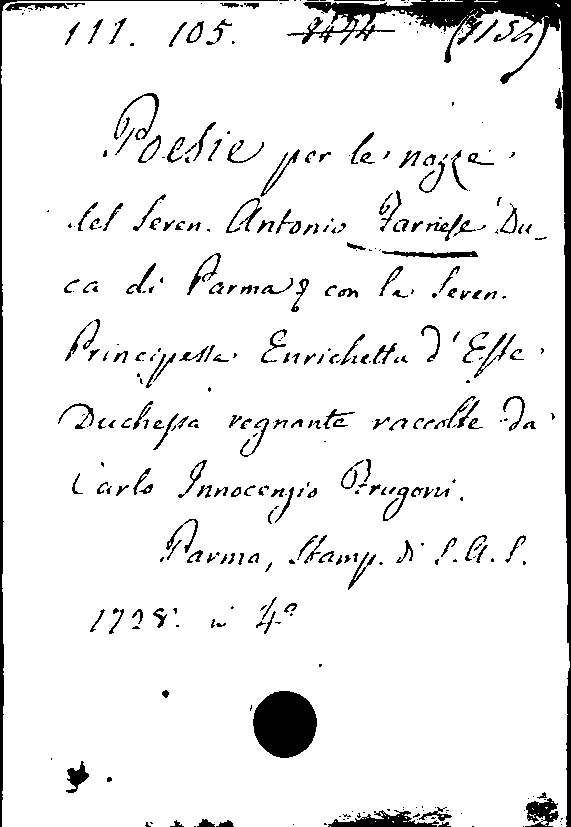 111. 105. 8494 (7154)
Poesie per le nozze
del Seren. Antonio Farnese Du-
ca di Parma &c con la Seren.
Principessa Enrichetta d'Este
Duchessa regnante raccolte da
Carlo Innocenzio Frugoni.
Parma, Stamp. di S.A.S.
1728. in 4º